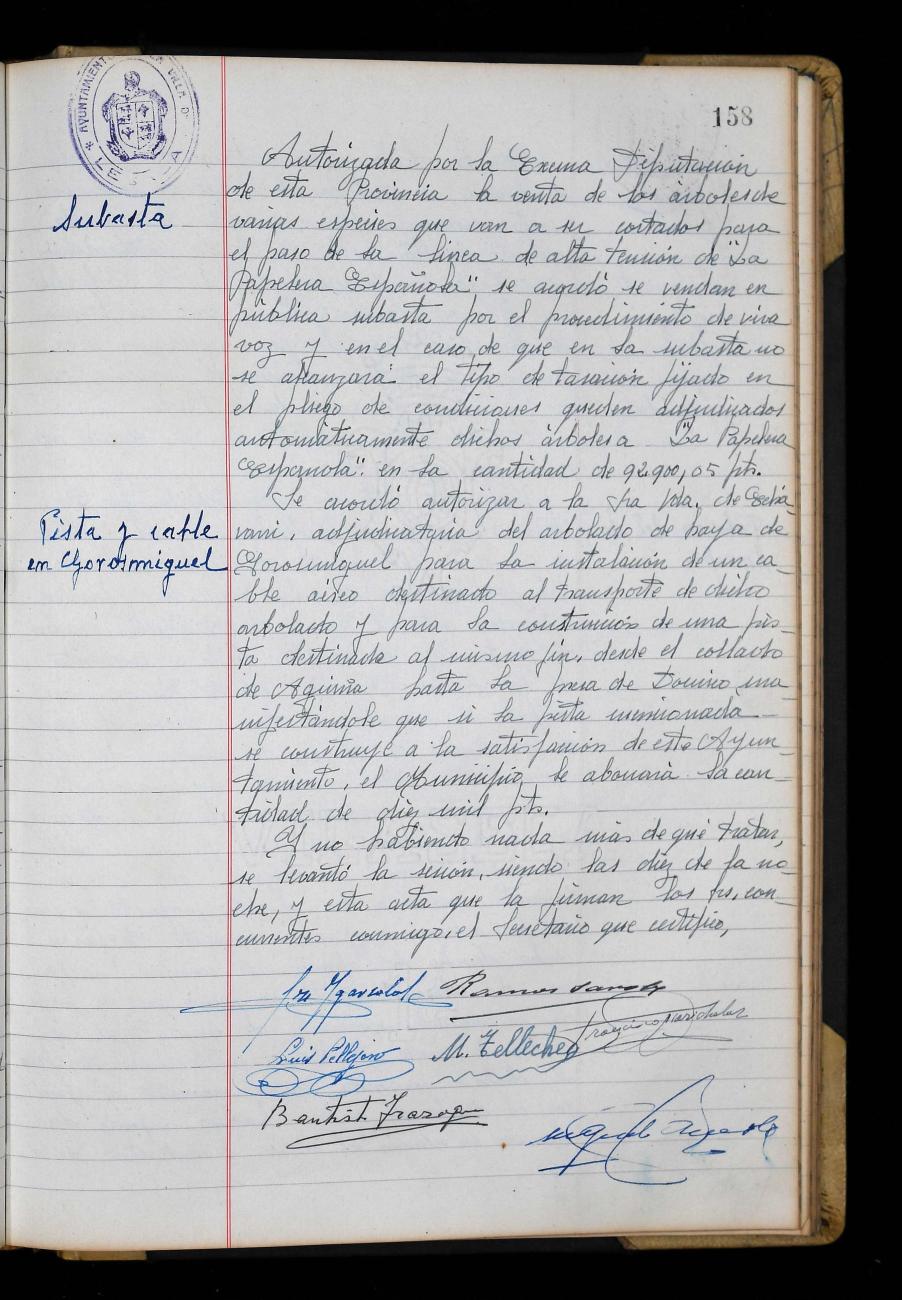 158
AYUNTAMIENT VILLA D
LE A
Subasta
Autorizada por la Excma Diputación
de esta Provincia la venta de los árboles de
varias especies que van a ser cortados para
el paso de la linea de alta tensión de "La
Papelera Española" se acordó se vendan en
pública subasta por el procedimiento de viva
voz y en el caso de que en la subasta no
se alcanzará el tipo de tasación fijado en
el pliego de condiciones queden adjudicados
automáticamente dichos árboles a "La Papelera
Española". en la cantidad de 92.900,05 pts.
Se acordó autorizar a la Sra Vda. de Echa
Pista y cable
en Gorosmiguel
varri, adjudicataria del arbolado de haya de
Gorosmiguel para la instalación de un ca-
ble aéreo destinado al transporte de dicho
arbolado y para la construcción de una pis-
ta destinada al mismo fin, desde el collado
de Aguiña hasta la presa de Domico ma-
nifestándole que si la pista mencionada
se construye a la satisfacción de este Ayun-
tamiento, el Municipio le abonará la can-
tidad de diez mil pts.
Y no habiendo nada más de qué tratar,
se levantó la sesión, siendo las diez de la no-
che, y esta acta que la firman los srs. con-
currentes conmigo, el Secretario que certifico,
Ramos
Luis Pellejero
M. Tellechea
Francisco
Bautista
Miguel